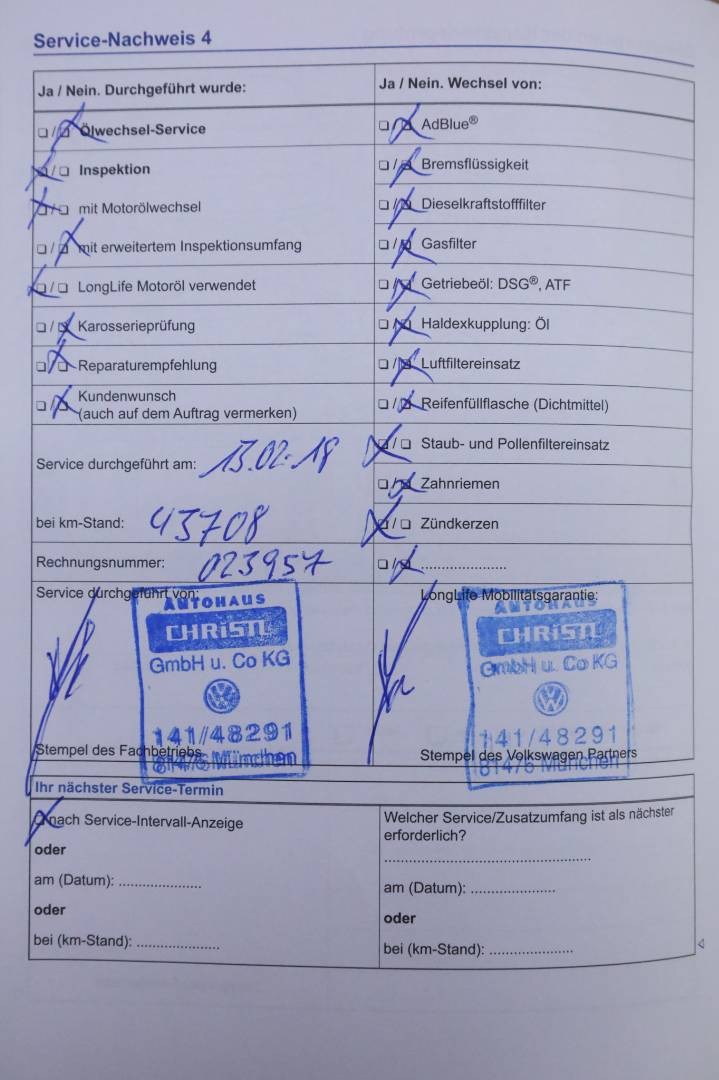 Service-Nachweis 4
Ja / Nein. Durchgeführt wurde:
Ölwechsel-Service
Inspektion
mit Motorölwechsel
mit erweitertem Inspektionsumfang
LongLife Motoröl verwendet
Karosserieprüfung
Reparaturempfehlung
Kundenwunsch
(auch auf dem Auftrag vermerken)
Service durchgeführt am: 13.02.18
bei km-Stand: 43708
Rechnungsnummer: 023957
Service durchgeführt von:
AUTOHAUS
CHRiSTL
GmbH u. Co KG
141/48291
81475 München
Stempel des Fachbetriebs
Ja / Nein. Wechsel von:
AdBlue®
Bremsflüssigkeit
Dieselkraftstofffilter
Gasfilter
Getriebeöl: DSG®, ATF
Haldexkupplung: Öl
Luftfiltereinsatz
Reifenfüllflasche (Dichtmittel)
Staub- und Pollenfiltereinsatz
Zahnriemen
Zündkerzen
......................
LongLife Mobilitätsgarantie:
AUTOHAUS
CHRiSTL
GmbH u. Co KG
141/48291
81475 München
Stempel des Volkswagen Partners
Ihr nächster Service-Termin
nach Service-Intervall-Anzeige
oder
am (Datum): .....................
oder
bei (km-Stand): .....................
Welcher Service/Zusatzumfang ist als nächster
erforderlich?
.....................................................
am (Datum): .....................
oder
bei (km-Stand): .....................